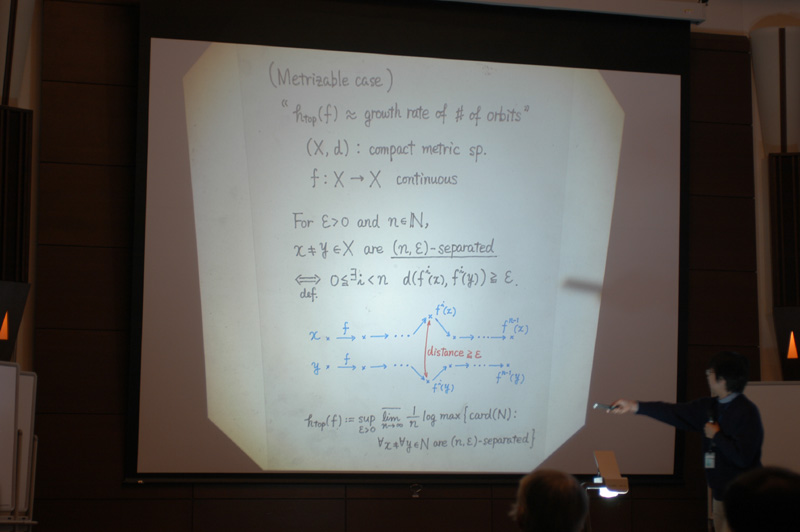 (Metrizable case)
"h_top(f) ≈ growth rate of # of orbits"
(X, d) : compact metric sp.
f : X → X continuous
For ε>0 and n∈ℕ,
x ≠ y ∈ X are (n, ε)-separated
⟺ def. 0 ≦ ∃i < n d(f^i(x), f^i(y)) ≧ ε.
f^i(x)
x f → → ··· → ··· → f^{n-1}(x)
distance ≧ ε
y f → → ··· → ··· → f^{n-1}(y)
f^i(y)
h_top(f) := sup_{ε>0} \overline{lim}_{n→∞} 1/n log max{card(N) :
∀x ≠ ∀y ∈ N are (n, ε)-separated}